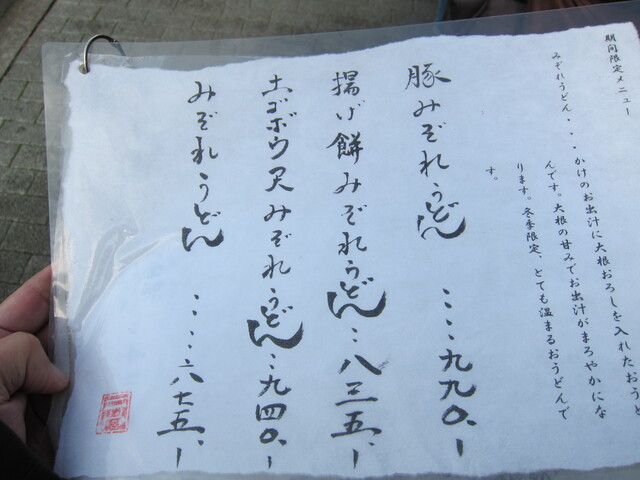 期間限定メニュー
みぞれうどん・・・かけのお出汁に大根おろしを入れたおうど
んです。大根の甘みでお出汁がまろやかにな
ります。冬季限定、とても温まるおうどんで
す。
豚みぞれうどん・・・九九〇、ー
揚げ餅みぞれうどん・・・八三五、ー
土ゴボウ天みぞれうどん・・・九四〇、ー
みぞれうどん・・・・六七五、ー